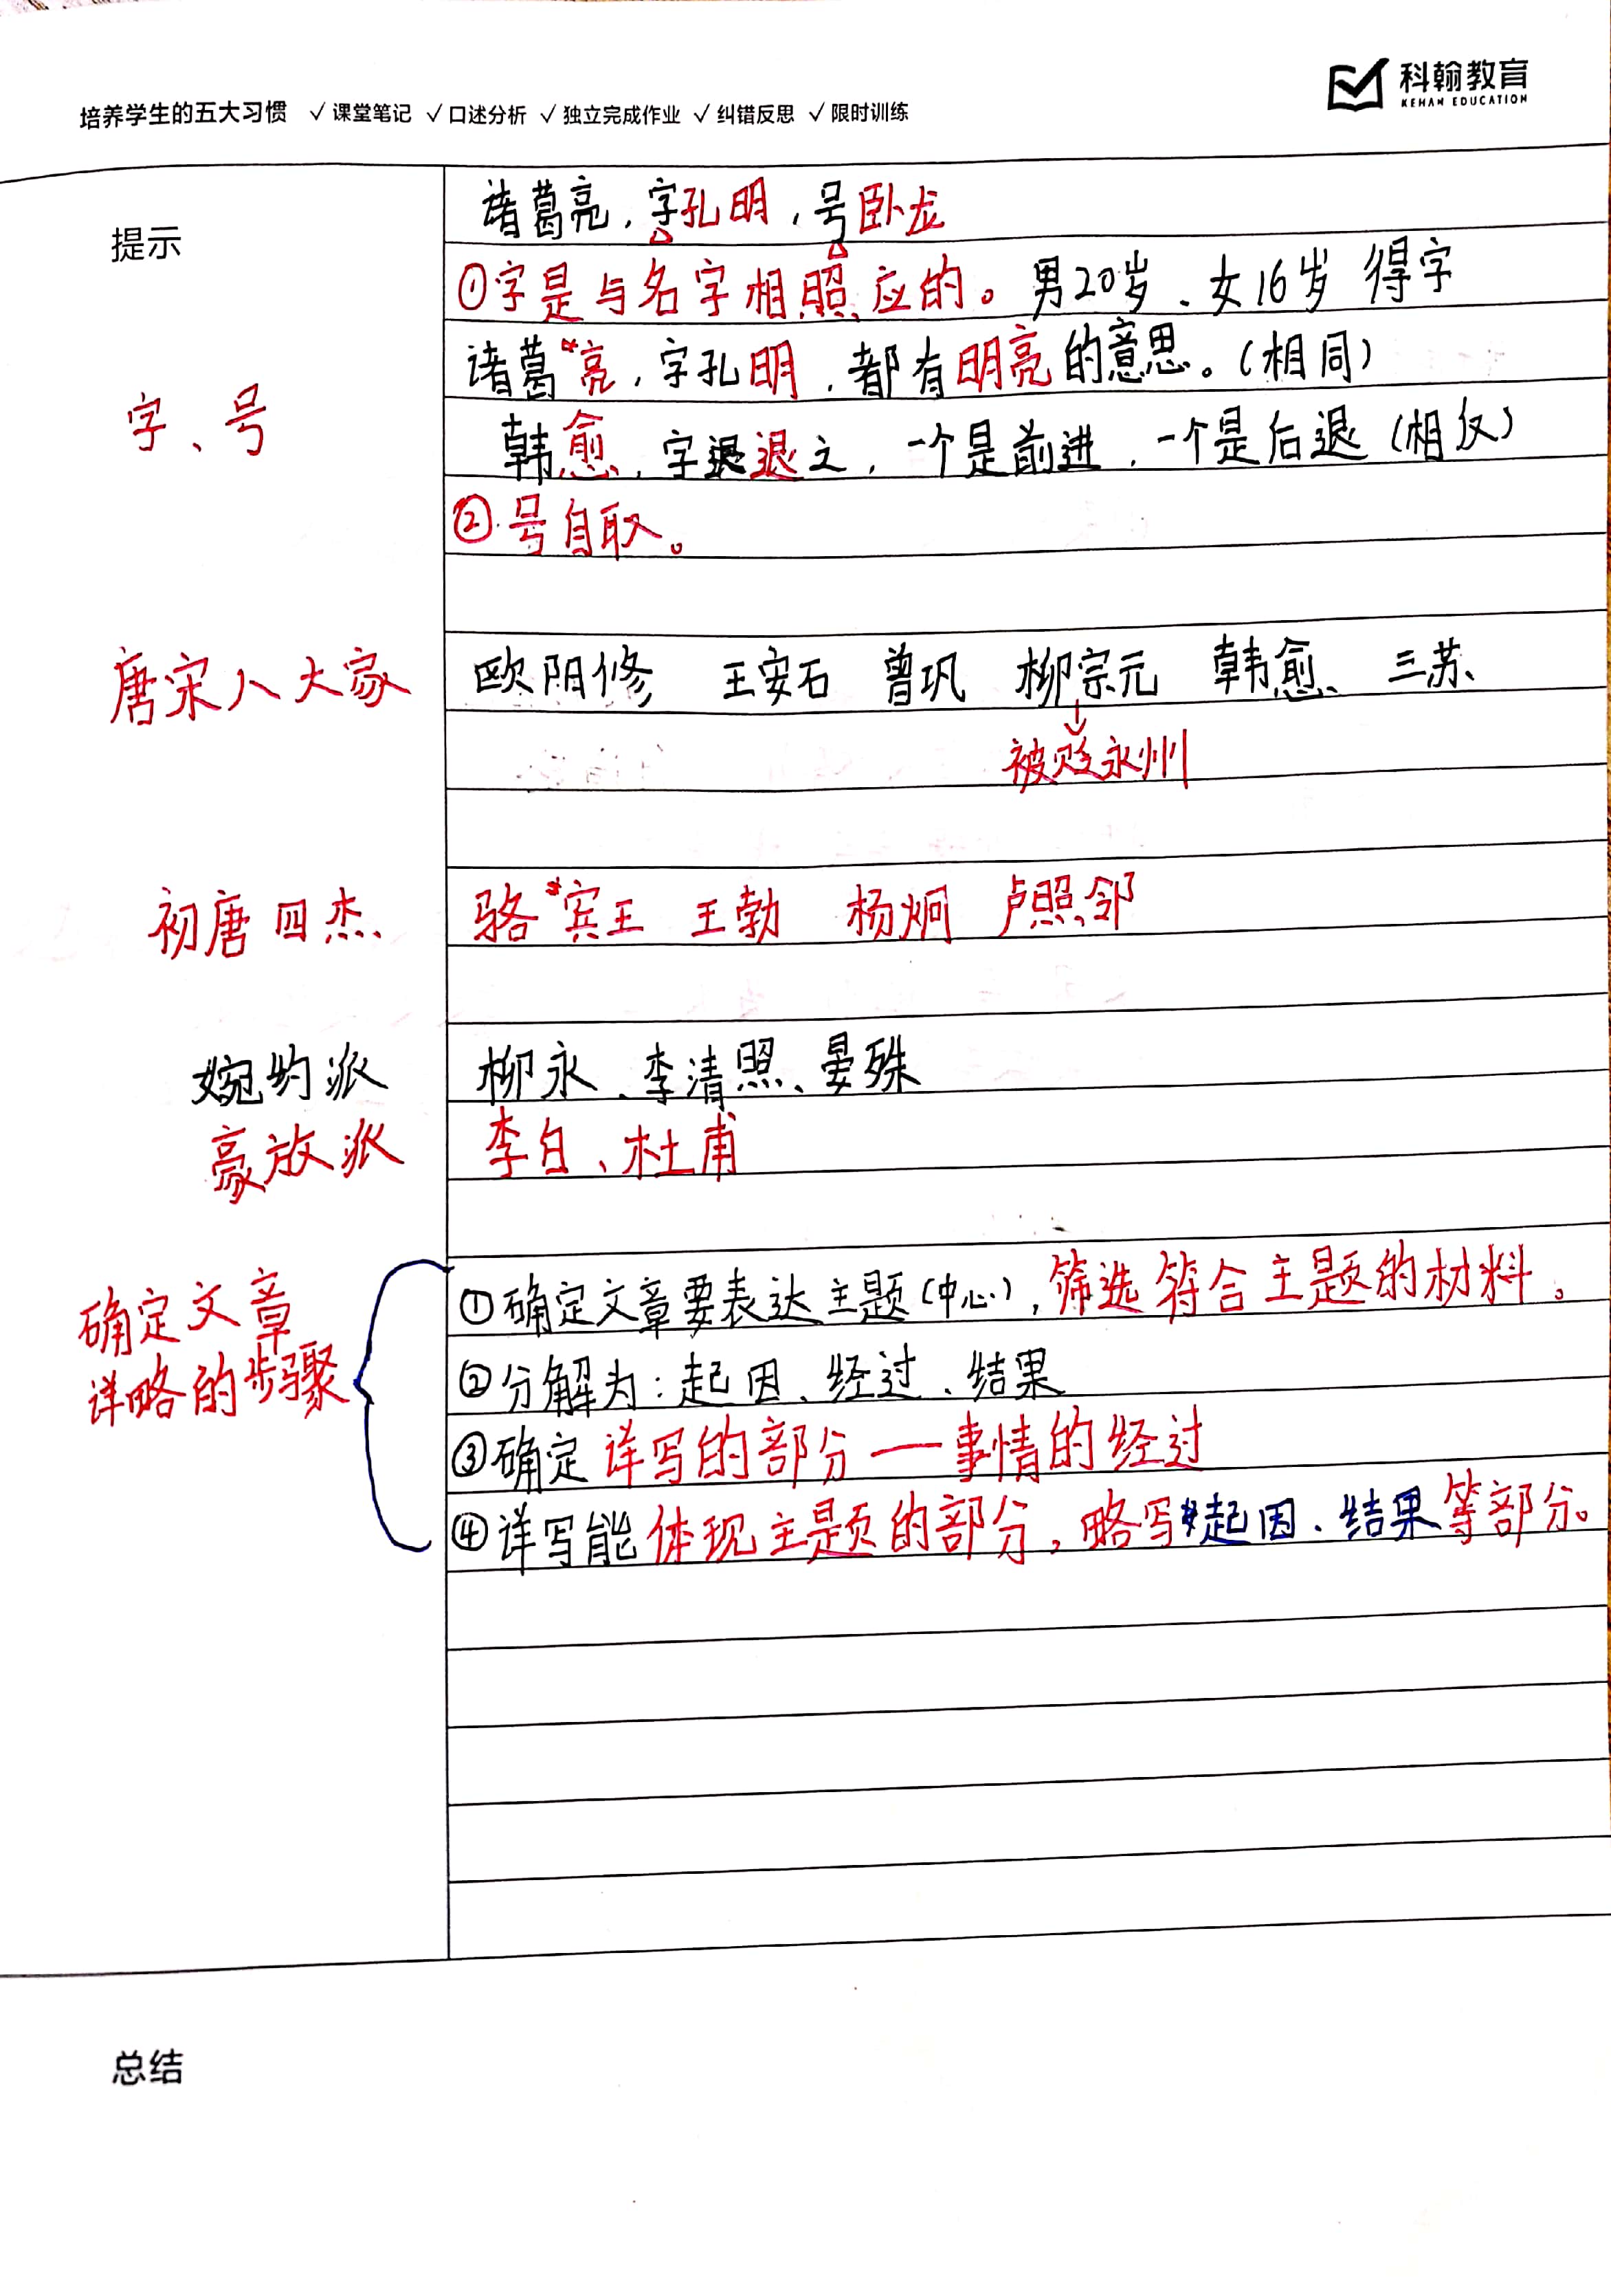 培养学生的五大习惯 ✓课堂笔记 ✓口述分析 ✓独立完成作业 ✓纠错反思 ✓限时训练
科翰教育
KEHAN EDUCATION
提示
诸葛亮，字孔明，号卧龙
①字是与名字相照应的。男20岁、女16岁 得字
字、号
诸葛亮，字孔明，都有明亮的意思。(相同)
韩愈，字退之，一个是前进，一个是后退(相反)
②号自取。
唐宋八大家
欧阳修 王安石 曾巩 柳宗元 韩愈、三苏、
↓
被贬永州
初唐四杰
骆宾王 王勃 杨炯 卢照邻
婉约派
柳永、李清照、晏殊
豪放派
李白、杜甫
确定文章
详略的步骤
①确定文章要表达主题(中心)，筛选符合主题的材料。
②分解为：起因、经过、结果
③确定详写的部分——事情的经过
④详写能体现主题的部分，略写起因、结果等部分。
总结